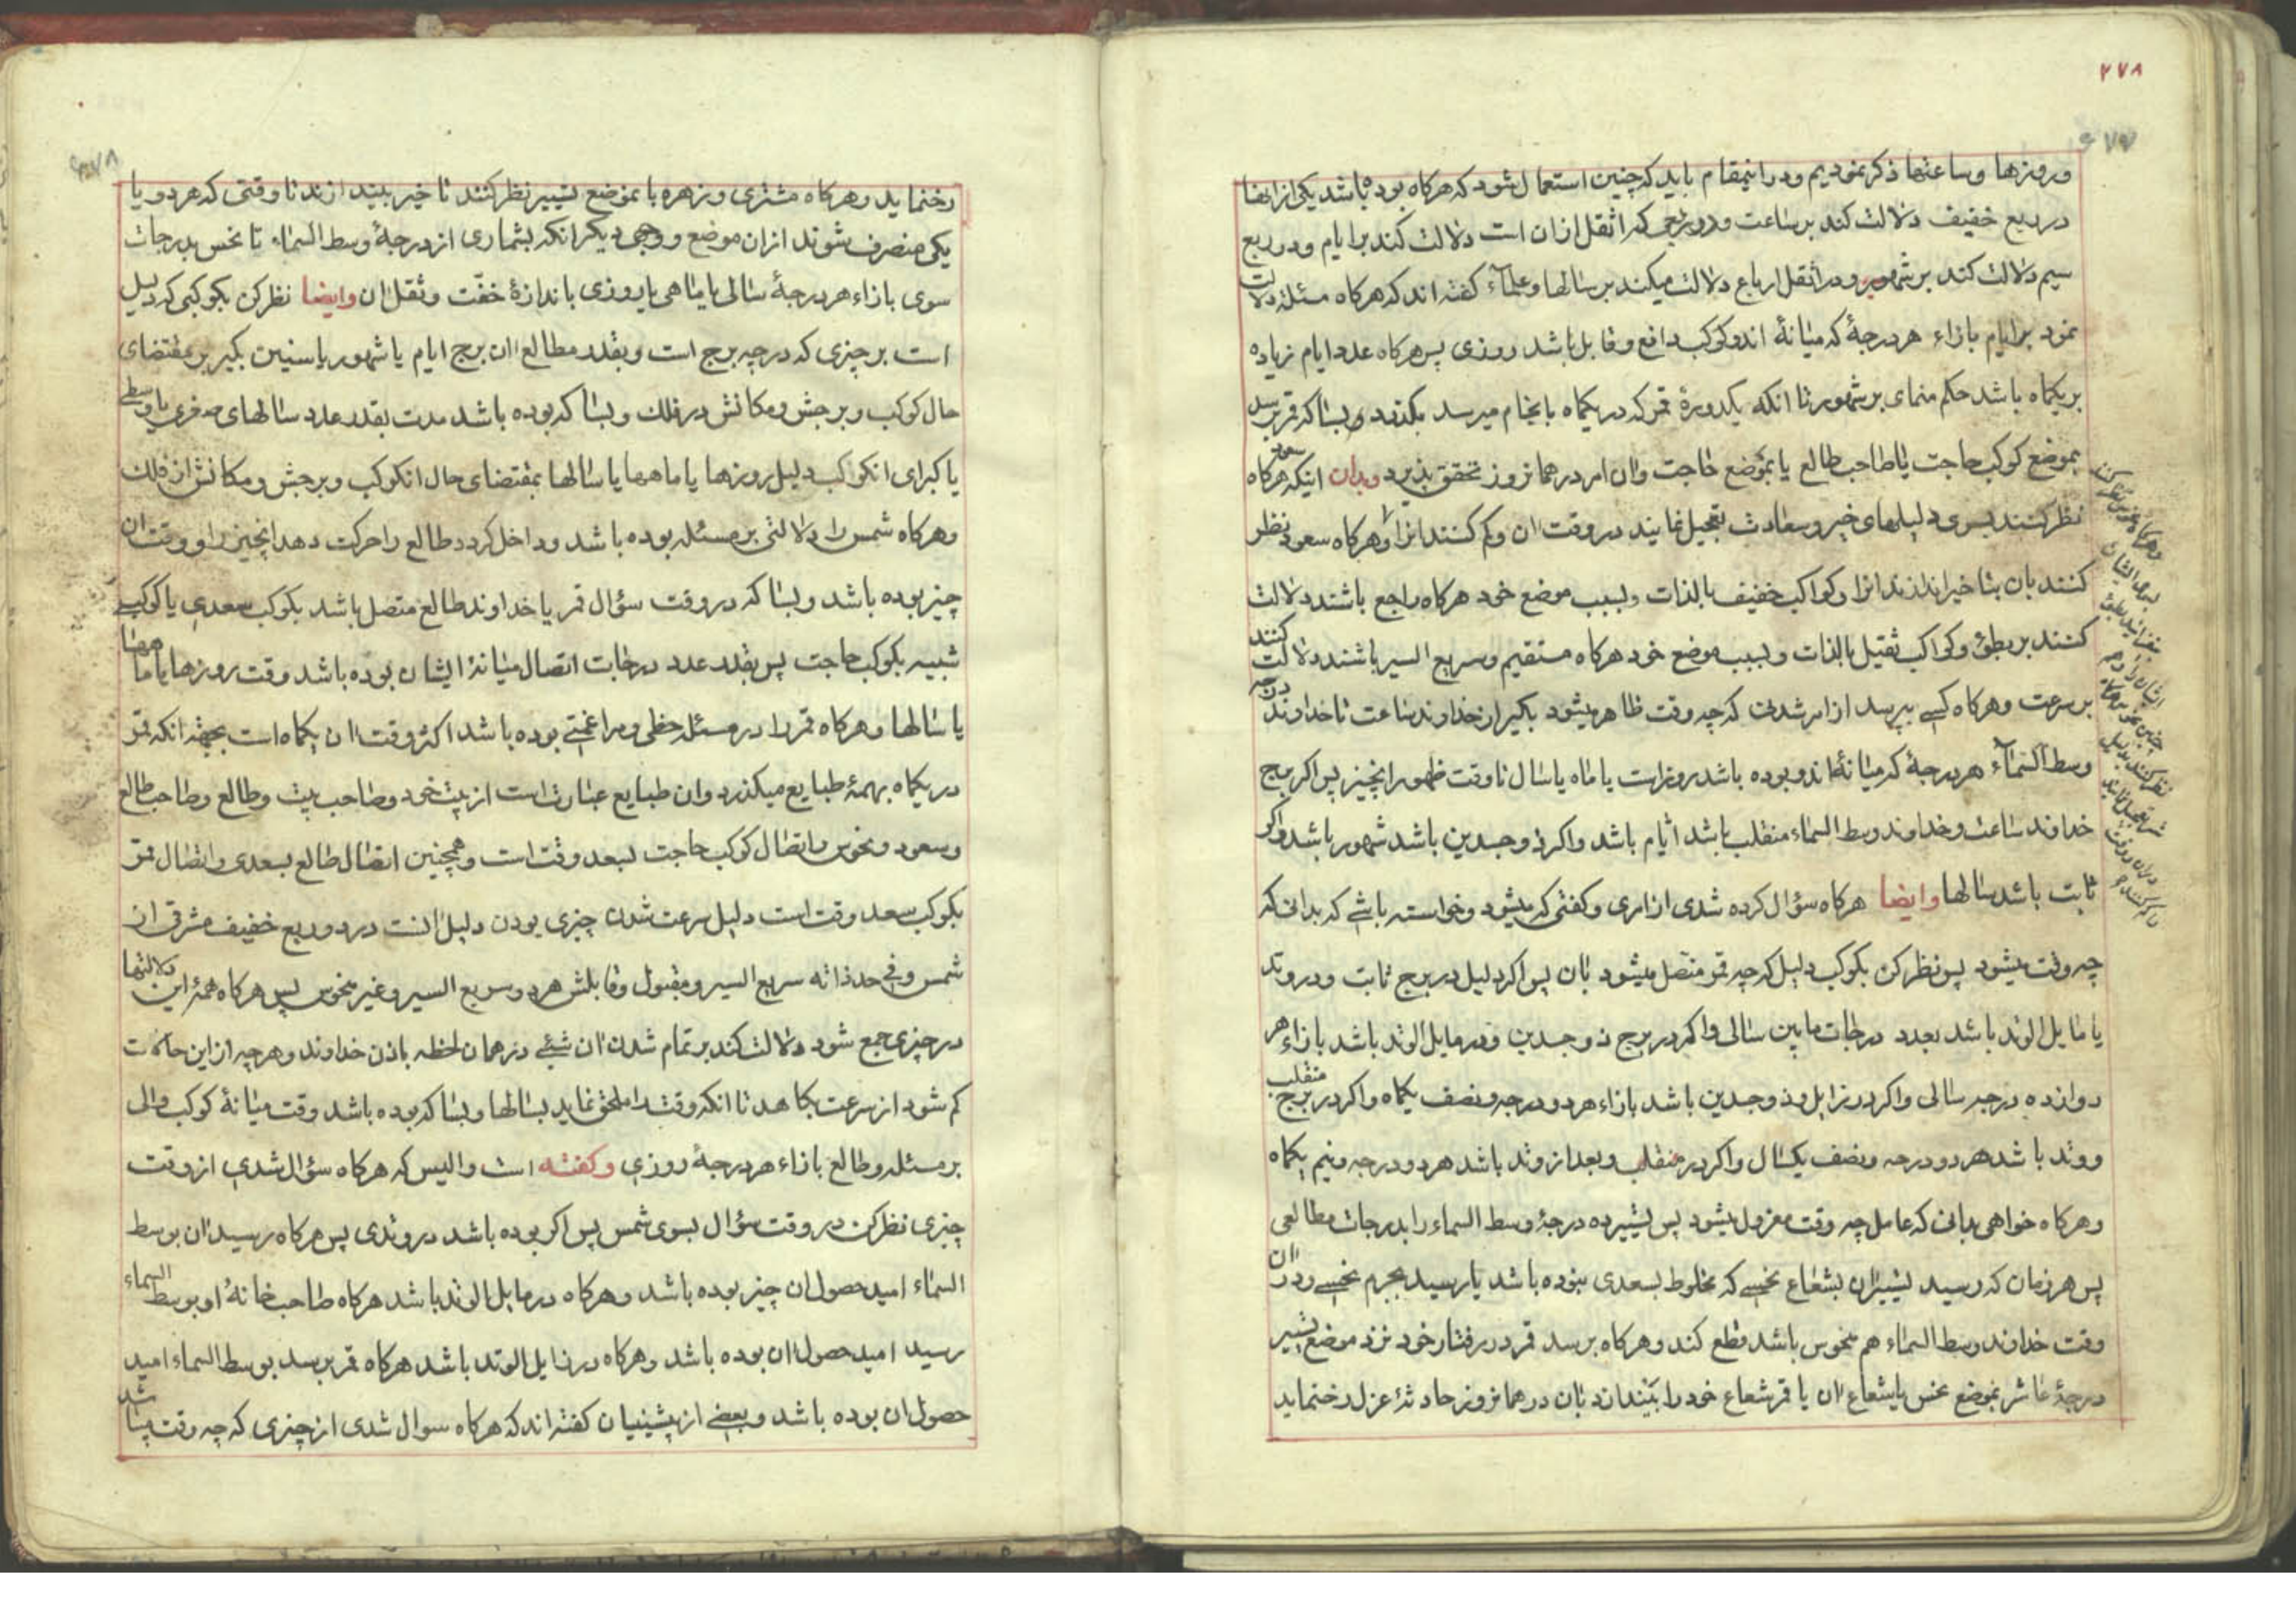 ۲۷۸
و روزها و ساعتها ذکر نمودیم و در اینمقام باید که چنین استعمال شود که هرکاه بوده باشد یکی از انها
در ربع خفیف دلالت کند بر ساعت و در ربعی که اثقل ازان است دلالت کند بر ایام و در ربع
سیم دلالت کند بر شهور و در اثقل ارباع دلالت میکند بر سالها و علماء کفته اند که هرکاه مسئله دلالت
نمود بر ایام بازاء هر درجهٔ که میانهٔ اندو کوکب دافع و قابل باشد روزی پس هرکاه عدد ایام زیاده
بر یکماه باشد حکم منمای بر شهور تا انکه یکدورهٔ قمر که در یکماه بانجام میرسد بکذرد و بسا که قمر برسد
بموضع کوکب حاجت یا صاحب طالع یا بموضع حاجت و ان امر در همانروز تحقق پذیرد وبدان اینکه هرکاه سعود
نظر کنند بسوی دلیلهای خیر و سعادت تعجیل نمایند در وقت ان و کم کنند انرا و هرکاه سعود نظر
کنند بان بتاخیر اندازند انرا و کواکب خفیف بالذات و بسبب موضع خود هرکاه راجع باشند دلالت
کنند بر بطؤ و کواکب ثقیل بالذات و بسبب موضع خود هرکاه مستقیم و سریع السیر باشند دلالت کنند
بر سرعت و هرکاه کسی بپرسد از امر شدنی که چه وقت ظاهر میشود بکیر از خداوند ساعت تا خداوند درجه
وسط السماء هر درجهٔ که میانهٔ اندو بوده باشد روز است یا ماه یا سال تا وقت ظهور انچیز پس اکر برج
خداوند ساعت و خداوند وسط السماء منقلب باشد ایام باشد و اکر ذو جسدین باشد شهور باشد و اکر
ثابت باشد سالها وایضا هرکاه سؤال کرده شدی از امری و کفتی که میشود و خواسته باشی که بدانی که
چه وقت میشود پس نظر کن بکوکب دلیل که چه قمر متصل میشود بان پس اکر دلیل در برج ثابت و در وتد
یا مایل الوتد باشد بعدد درجات مابین سالی و اکر در برج ذو جسدین و در مایل الوتد باشد بازاء هر
دوازده درجه سالی و اکر در زایل و ذو جسدین باشد بازاء هر دو درجه و نصف یکماه و اکر در برج منقلب
و وتد باشد هر دو درجه و نصف یکسال و اکر در منقلب و بعد از وتد باشد هر دو درجه و نیم یکماه
و هرکاه خواهی بدانی که عامل چه وقت معزول میشود پس تسییر ده درجهٔ وسط السماء را بدرجات مطالعی
پس هر زمان که رسید تسییر ان بشعاع نحسی که مخلوط بسعدی نبوده باشد یا رسید بجرم نحسی و در ان
وقت خداوند وسط السماء هم منحوس باشد قطع کند و هرکاه برسد قمر در رفتار خود نزد موضع تسییر
درجهٔ عاشر بموضع نحس یا شعاع ان یا قمر شعاع خود را بیندازد بان در همانروز حادثهٔ عزل رخنماید
رخنماید و هرکاه مشتری و زهره با بموضع تسییر نظر کنند تا خیر بیندازند تا وقتی که هر دو یا
یکی منصرف شوند از ان موضع و وجهی دیکر انکه بشماری از درجهٔ وسط السماء تا نحس بدرجات
سوی بازاء هر درجهٔ سالی یا ماهی یا روزی باندازهٔ خفّت و ثقل ان وایضا نظر کن بکوکبی که دلیل
است بر چیزی که در چه برج است و بقدر مطالع ان برج ایام یا شهور یا سنین بکیر بر مقتضای
حال کوکب و برجش و مکانش در فلک و بسا که بوده باشد مدت بقدر عدد سالهای صغری یا وسطی
یا کبرای انکوکب دلیل روزها یا ماهها یا سالها بمقتضای حال انکوکب و برجش و مکانش از فلک
و هرکاه شمس را دلالتی بر مسئله بوده باشد و داخل کردد طالع را حرکت دهد انچیز را و وقت ان
چیز بوده باشد و بسا که در وقت سؤال قمر یا خداوند طالع متصل باشد بکوکب سعدی یا کوکب
شبیه بکوکب حاجت پس بقدر عدد درجات اتصال میانهٔ ایشان بوده باشد وقت روزها یا ماهها
یا سالها و هرکاه قمر را در مسئله حظی و مراغمتی بوده باشد اکثر وقت ان یکماه است بجهة انکه قمر
در یکماه بهمهٔ طبایع میکذرد و ان طبایع عبارتست از بیت خود و صاحب بیت و طالع و صاحب طالع
و سعود و نحوس و اتصال کوکب حاجت بسعد وقت است و همچنین اتصال طالع بسعدی و اتصال قمر
بکوکب سعد وقت است دلیل سرعت شدن چیزی بودن دلیل انست در دو ربع خفیف مشرقی از
شمس و فی حد ذاته سریع السیر و مقبول و قابلش هر دو سریع السیر و غیر منحوس پس هرکاه همهٔ این دلالتها
در چیزی جمع شود دلالت کند بر تمام شدن ان شیئی در همان لحظه باذن خداوند و هرچه از این حالات
کم شود از سرعت بکاهد تا انکه وقت را ملحق نماید بسالها و بسا که بوده باشد وقت میانهٔ کوکب والی
بر مسئله و طالع بازاء هر درجهٔ روزی وکفته است والیس که هرکاه سؤال شدی از وقت
چیزی نظر کن در وقت سؤال بسوی شمس پس اکر بوده باشد در وتدی پس هرکاه رسید ان بوسط
السماء امید حصول ان چیز بوده باشد و هرکاه در مایل الوتد باشد هرکاه صاحب خانهٔ او بوسط السماء
رسید امید حصول ان بوده باشد و هرکاه در زایل الوتد باشد هرکاه قمر برسد بوسط السماء امید
حصول ان بوده باشد و بعضی از پیشینیان کفته اند که هرکاه سوال شدی از چیزی که چه وقت میباشد